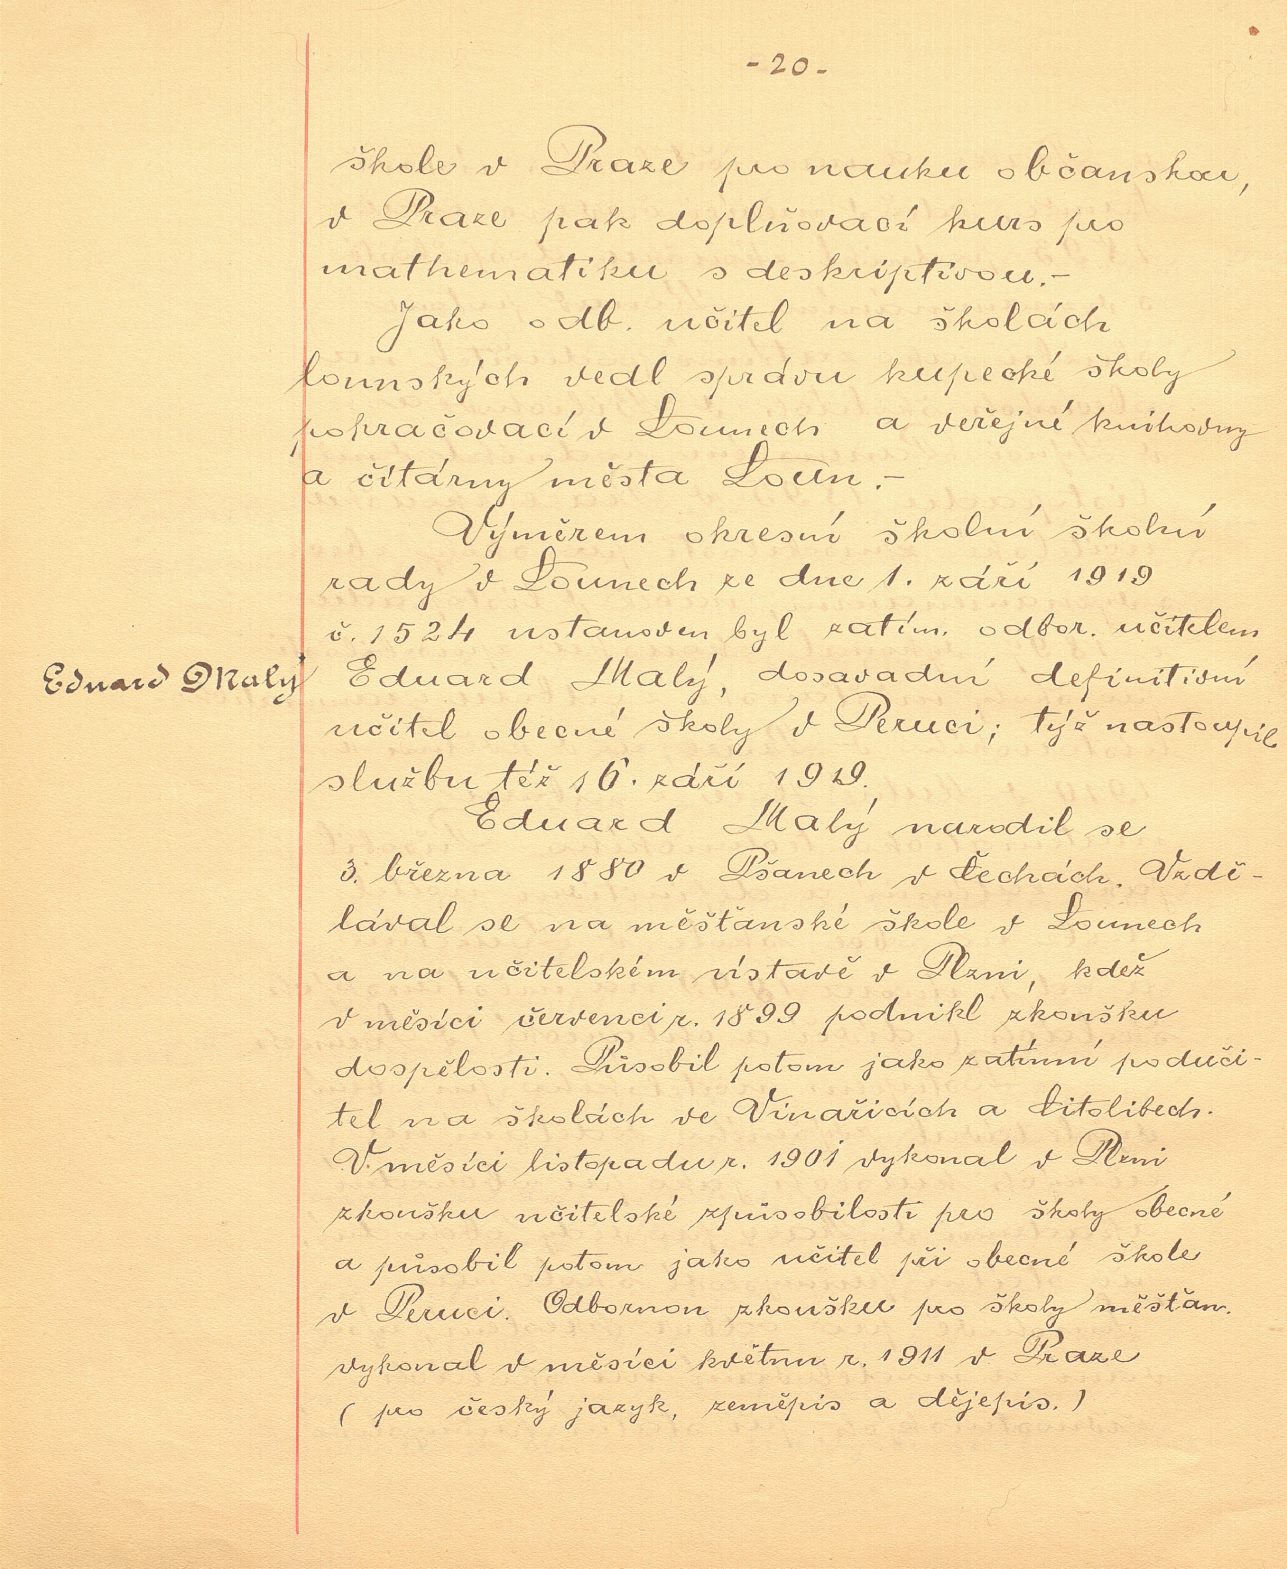 -20-
škole v Praze pro nauku občanskou,
v Praze pak doplňovací kurs pro
mathematiku s deskriptivou.-
Jako odb. učitel na školách
lounských vedl správu kupecké školy
pokračovací v Lounech a veřejné knihovny
a čítárny města Loun.-
Výměrem okresní školní školní
rady v Lounech ze dne 1. září 1919
č. 1524 ustanoven byl zatím. odbor. učitelem
Eduard Malý
Eduard Malý, dosavadní definitivní
učitel obecné školy v Peruci; týž nastoupil
službu též 16. září 1919.
Eduard Malý narodil se
3. března 1880 v Pšanech v Čechách. Vzdě-
lával se na měšťanské škole v Lounech
a na učitelském ústavě v Plzni, kdež
v měsíci červenci r. 1899 podnikl zkoušku
dospělosti. Působil potom jako zatímní poduči-
tel na školách ve Vinařicích a Citolibech.
V měsíci listopadu r. 1901 vykonal v Plzni
zkoušku učitelské způsobilosti pro školy obecné
a působil potom jako učitel při obecné škole
v Peruci. Odbornou zkoušku pro školy měšťan.
vykonal v měsíci květnu r. 1911 v Praze
( pro český jazyk, zeměpis a dějepis. )